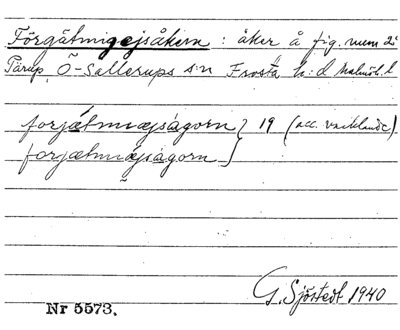 Förgätmigejsåkern : åker å fig. num 2
Tärup, Ö-Sallerups s:n Frosta h:d Malmöh. l
forjǽtmiæjságorn } 19 (acc. växlande)
forjætmiǽjságorn }
G. Sjöstedt 1940
Nr 5573.